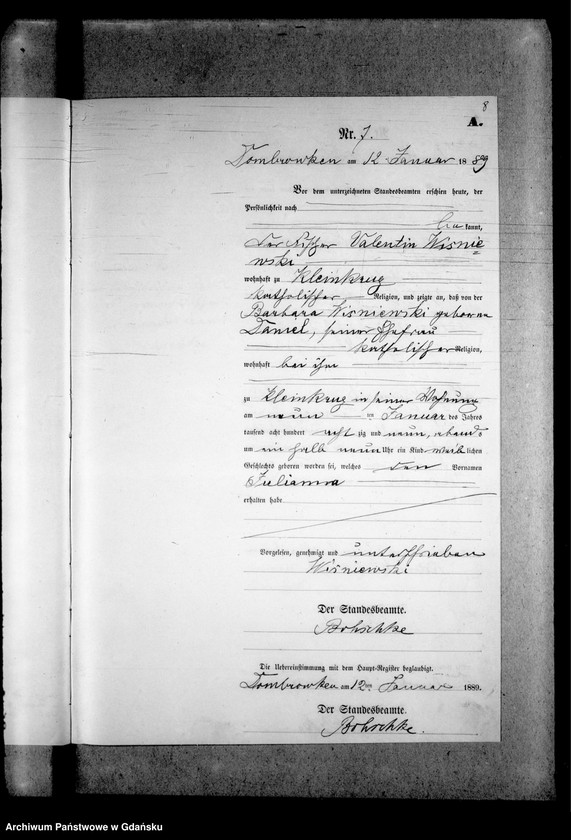 8
A.
Nr. 7.
Dombrowken am 12 Januar 1889
Vor dem unterzeichneten Standesbeamten erschien heute, der
Persönlichkeit nach
bekannt,
der Fischer Valentin Wisnie
wski
wohnhaft zu Kleinkrug
katholischer Religion, und zeigte an, daß von der
Barbara Wisniewski geboren
Daniel, seiner Ehefrau
katholischer Religion,
wohnhaft bei ihm
zu Kleinkrug in seiner Wohnung
am neun ten Januar des Jahres
tausend acht hundert acht zig und neun, abends
um ein halb neun Uhr ein Kind weiblichen
Geschlechts geboren worden sei, welches den Vornamen
Julianna
erhalten habe
Vorgelesen, genehmigt und unterschrieben
Wisniewski
Der Standesbeamte.
Die Uebereinstimmung mit dem Haupt-Register beglaubigt.
Dombrowken am 12ten Januar 1889.
Der Standesbeamte.
Archiwum Państwowe w Gdańsku